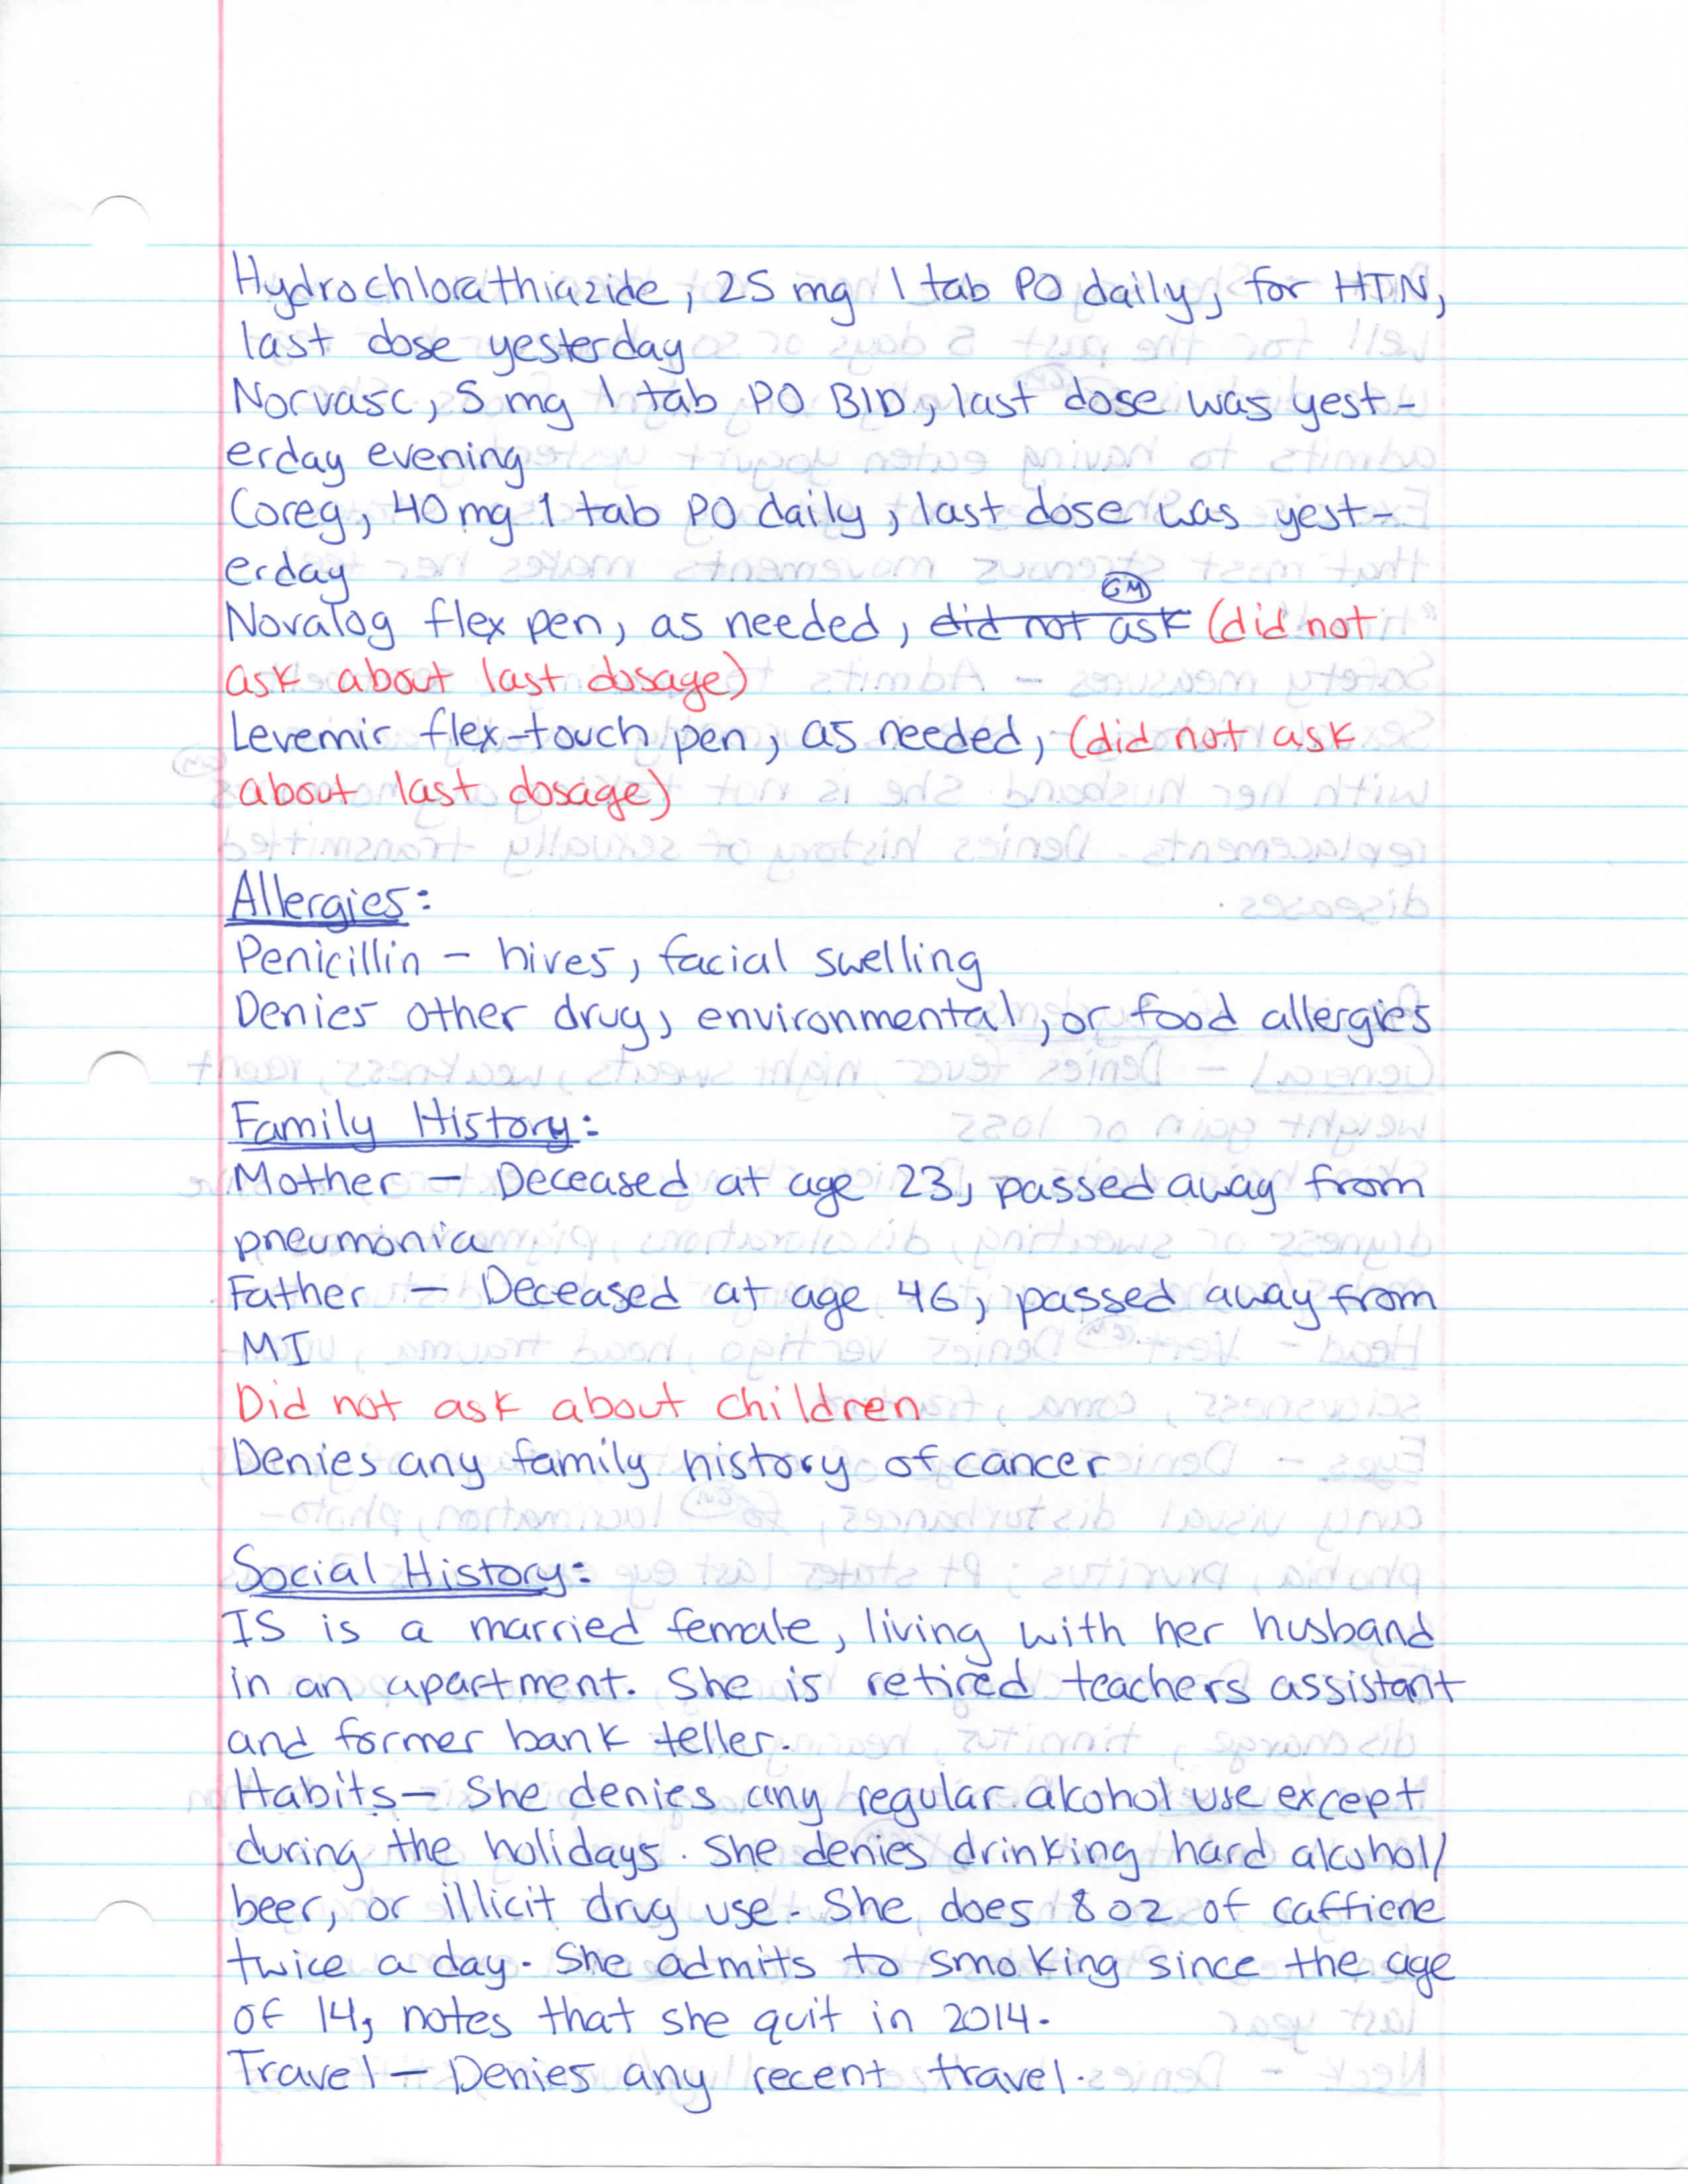 Hydrochlorathiazide, 25 mg 1 tab PO daily, for HTN,
last dose yesterday
Norvasc, 5 mg 1 tab PO BID, last dose was yest-
erday evening
Coreg, 40 mg 1 tab PO daily, last dose was yest-
erday
GM
Novalog flex pen, as needed, did not ask (did not
ask about last dosage)
Levemir flex-touch pen, as needed, (did not ask
about last dosage)
Allergies:
Penicillin - hives, facial swelling
Denies other drug, environmental, or food allergies
Family History:
Mother - Deceased at age 23, passed away from
pneumonia
Father - Deceased at age 46, passed away from
MI
Did not ask about children
Denies any family history of cancer
Social History:
IS is a married female, living with her husband
in an apartment. She is retired teachers assistant
and former bank teller.
Habits - She denies any regular alcohol use except
during the holidays. She denies drinking hard alcohol/
beer, or illicit drug use. She does 8 oz of caffiene
twice a day. She admits to smoking since the age
of 14, notes that she quit in 2014.
Travel - Denies any recent travel.